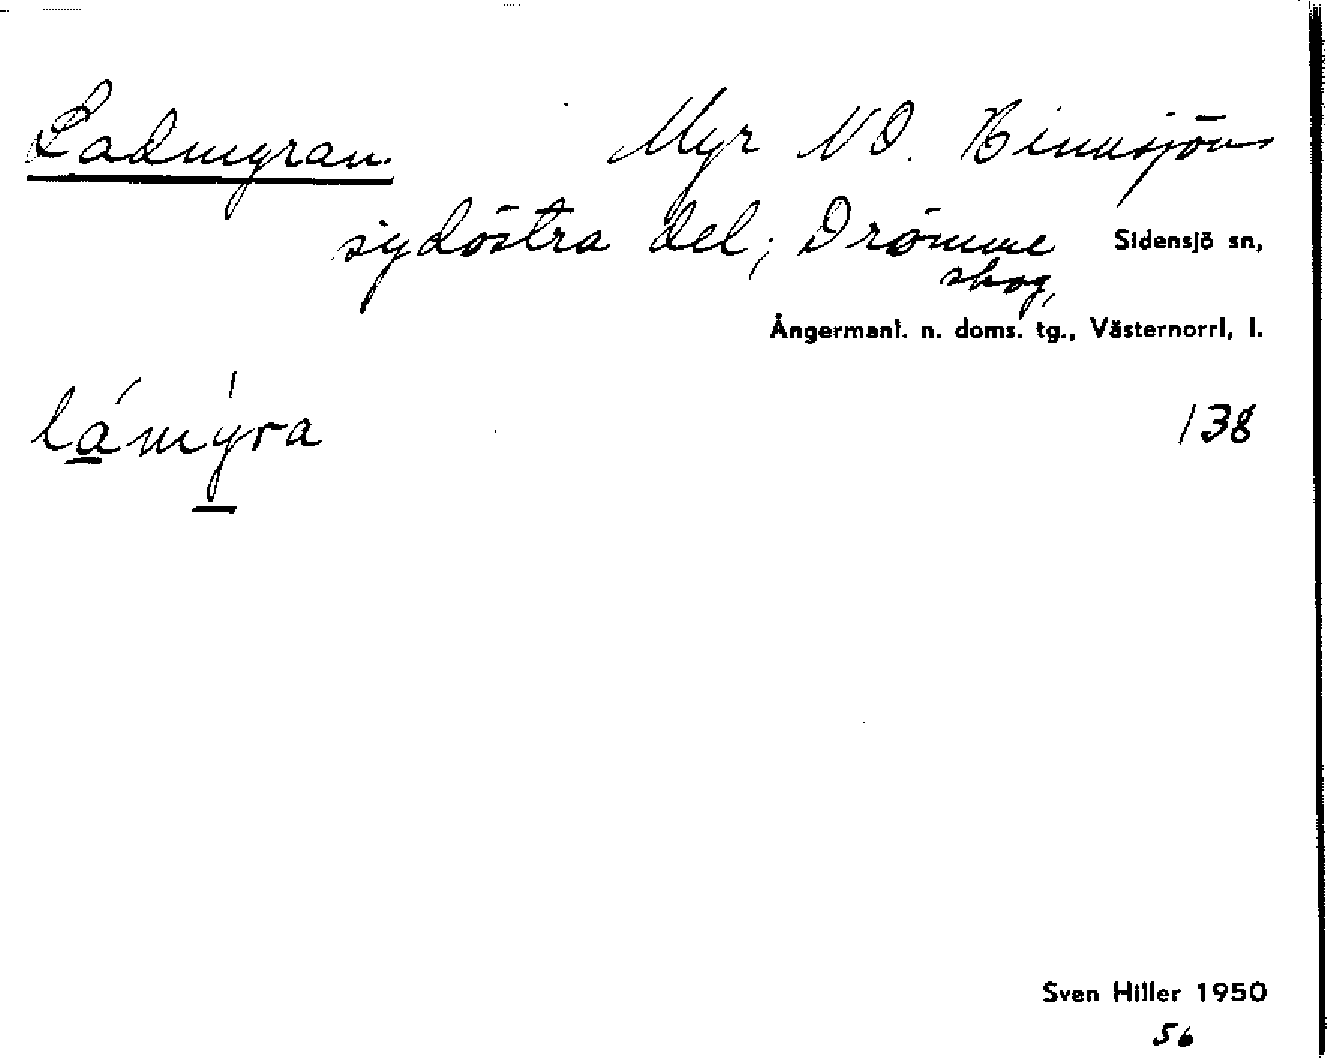 Ladmyran. Myr NO. Hinnsjöns
sydöstra del; Drömme Sidensjö sn,
skog,
Ångermanl. n. doms. tg., Västernorrl, l.
lámýra 138
Sven Hiller 1950
56